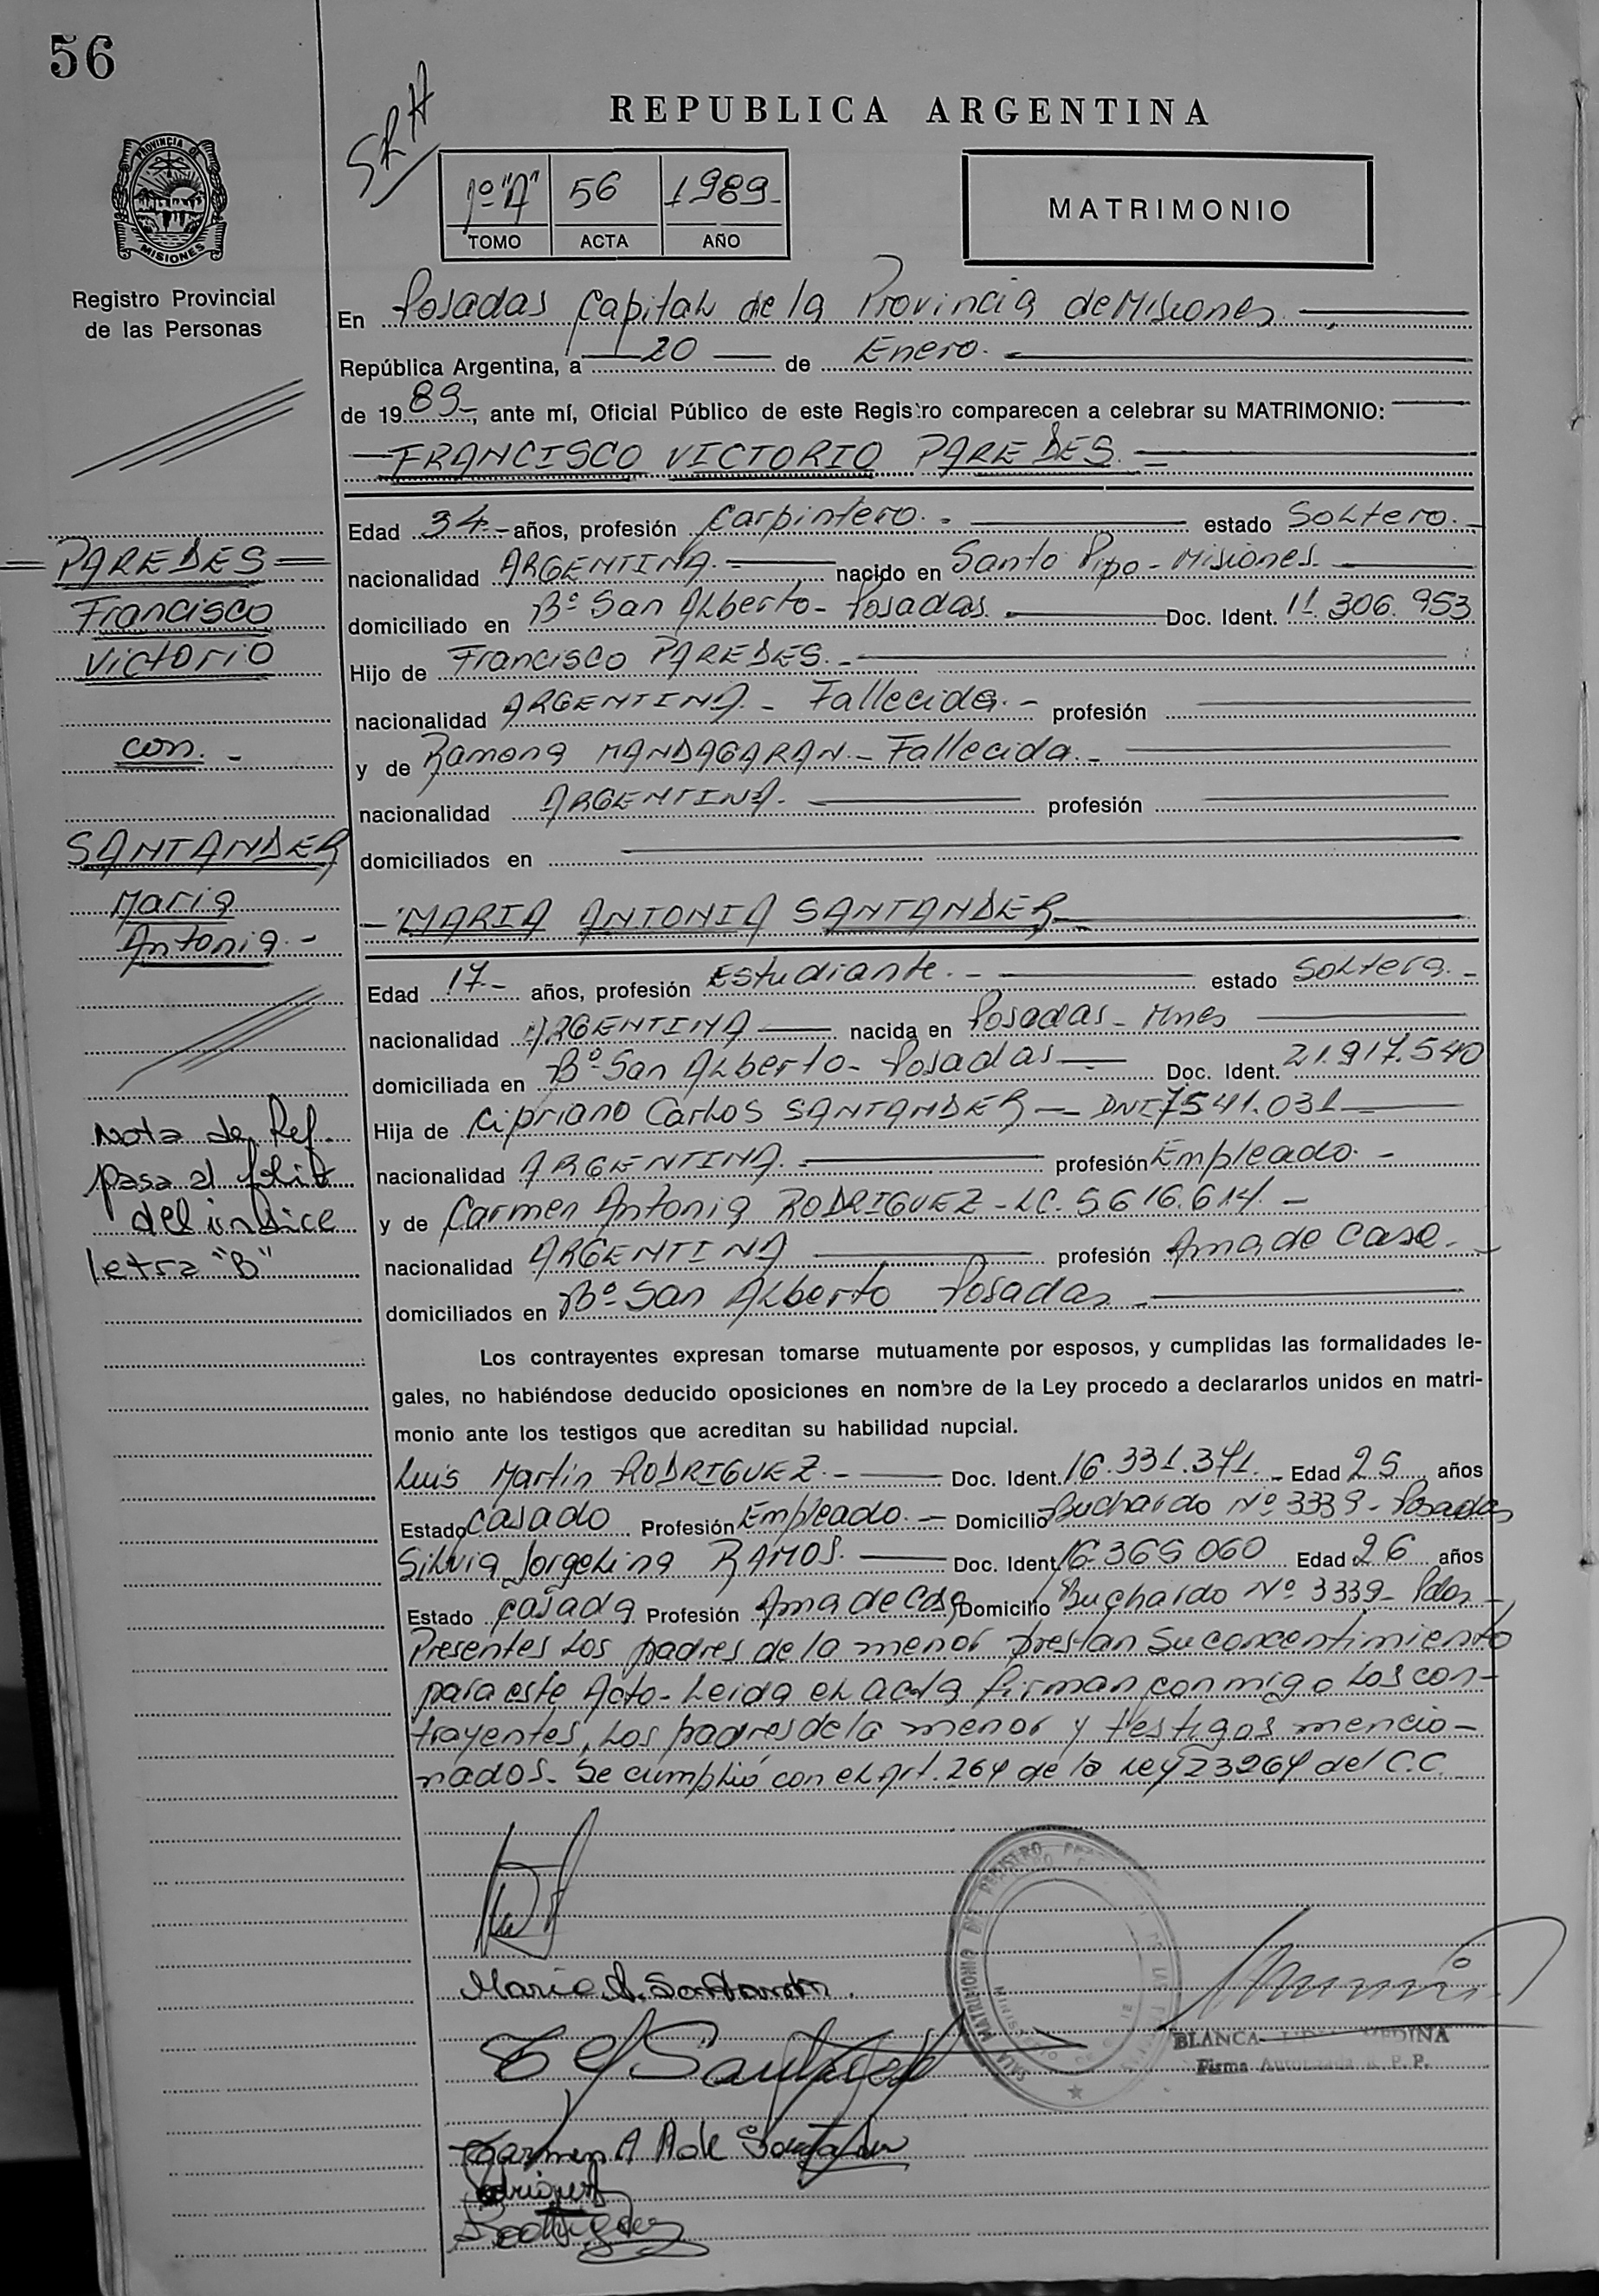 56
SRA
REPUBLICA ARGENTINA
1º "A" 56 1989-
TOMO ACTA AÑO
MATRIMONIO
PROVINCIA DE
MISIONES
Registro Provincial
de las Personas
En Posadas Capital de la Provincia de Misiones
República Argentina, a 20 de Enero.
de 1989-, ante mí, Oficial Público de este Registro comparecen a celebrar su MATRIMONIO:
FRANCISCO VICTORIO PAREDES.
Edad 34- años, profesión Carpintero.- estado Soltero.-
nacionalidad ARGENTINA.- nacido en Santo Pipo- Misiones
domiciliado en Bº San Alberto- Posadas Doc. Ident. 11.306.953
Hijo de Francisco PAREDES.-
nacionalidad ARGENTINA.- Fallecida.- profesión
y de Ramona MANDAGARAN.- Fallecida.-
nacionalidad ARGENTINA.- profesión
domiciliados en
MARIA ANTONIA SANTANDER-
Edad 17- años, profesión Estudiante.- estado Soltera.-
nacionalidad ARGENTINA nacida en Posadas- Mnes
domiciliada en Bº San Alberto- Posadas Doc. Ident. 21.917.540
Hija de Cipriano Carlos SANTANDER - DNI 7541.031
nacionalidad ARGENTINA.- profesión Empleado.-
y de Carmen Antonia RODRIGUEZ - LC. 5.616.614.-
nacionalidad ARGENTINA profesión Ama de Casa.-
domiciliados en Bº San Alberto Posadas
Los contrayentes expresan tomarse mutuamente por esposos, y cumplidas las formalidades le-
gales, no habiéndose deducido oposiciones en nombre de la Ley procedo a declararlos unidos en matri-
monio ante los testigos que acreditan su habilidad nupcial.
Luis Martin RODRIGUEZ.- Doc. Ident. 16.331.371.- Edad 25 años
Estado Casado Profesión Empleado.- Domicilio Buchardo Nº 3339- Posadas
Silvia Jorgelina RAMOS.- Doc. Ident. 16.365.060 Edad 26 años
Estado Casada Profesión Ama de Casa Domicilio Buchardo Nº 3339- Pdas-
Presentes Los padres de la menor prestan su concentimiento
para este Acto- Leida el acta firman conmigo Los con-
trayentes, Los padres de la menor y testigos mencio-
nados- Se cumplió con el Art. 264 de la Ley 23264 del C.C.
PAREDES
Francisco
Victorio
con.-
SANTANDER
Maria
Antonia.-
Nota de Ref.
pasa al folio
del indice
letra "B"
Maria A. Santander
Carmen A R de Santander
Rodriguez
BLANCA MEDINA
Firma Autorizada R. P. P.